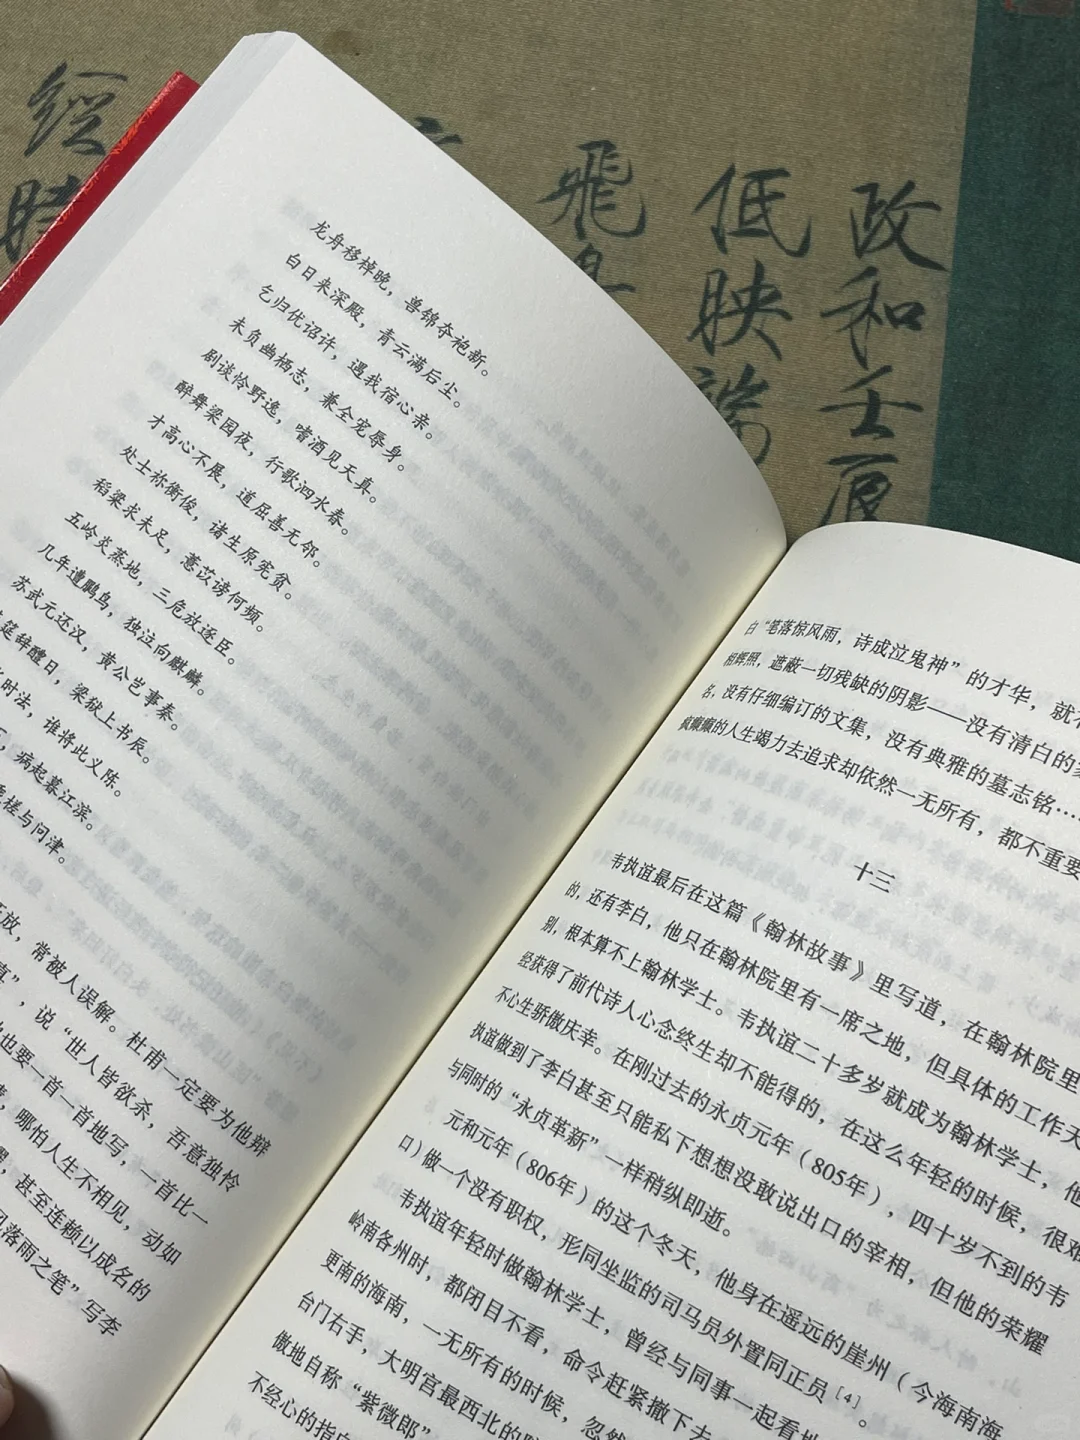 龙舟移棹晚，兽锦夺袍新。
白日来深殿，青云满后尘。
乞归优诏许，遇我宿心亲。
未负幽栖志，兼全宠辱身。
剧谈怜野逸，嗜酒见天真。
醉舞梁园夜，行歌泗水春。
才高心不展，道屈善无邻。
处士祢衡俊，诸生原宪贫。
稻粱求未足，薏苡谤何频。
五岭炎蒸地，三危放逐臣。
几年遭鵩鸟，独泣向麒麟。
苏武元还汉，黄公岂事秦。
筵辞醴日，梁狱上书辰。
时法，谁将此义陈。
，病起暮江滨。
槎与问津。
放，常被人误解。杜甫一定要为他辩
”，说“世人皆欲杀，吾意独怜
也要一首一首地写，一首比一
，哪怕人生不相见，动如
，甚至连赖以成名的
落雨之笔”写李
白“笔落惊风雨，诗成泣鬼神”的才华，就
相辉照，遮蔽一切残缺的阴影——没有清白的
名，没有仔细编订的文集，没有典雅的墓志铭…
疯癫癫的人生竭力去追求却依然一无所有，都不重要
十三
韦执谊最后在这篇《翰林故事》里写道，在翰林院里
的，还有李白，他只在翰林院里有一席之地，但具体的工作天
别，根本算不上翰林学士。韦执谊二十多岁就成为翰林学士，他
经获得了前代诗人心念终生却不能得的，在这么年轻的时候，很难
不心生骄傲庆幸。在刚过去的永贞元年（805年），四十岁不到的韦
执谊做到了李白甚至只能私下想想没敢说出口的宰相，但他的荣耀
与同时的“永贞革新”一样稍纵即逝。
元和元年（806年）的这个冬天，他身在遥远的崖州（今海南海
口）做一个没有职权，形同坐监的司马员外置同正员[4]。
韦执谊年轻时做翰林学士，曾经与同事一起看
岭南各州时，都闭目不看，命令赶紧撤下去
更南的海南，一无所有的时候，忽
台门右手，大明宫最西北的
傲地自称“紫微郎”
不经心的指
政和壬辰
低映端
飛
經